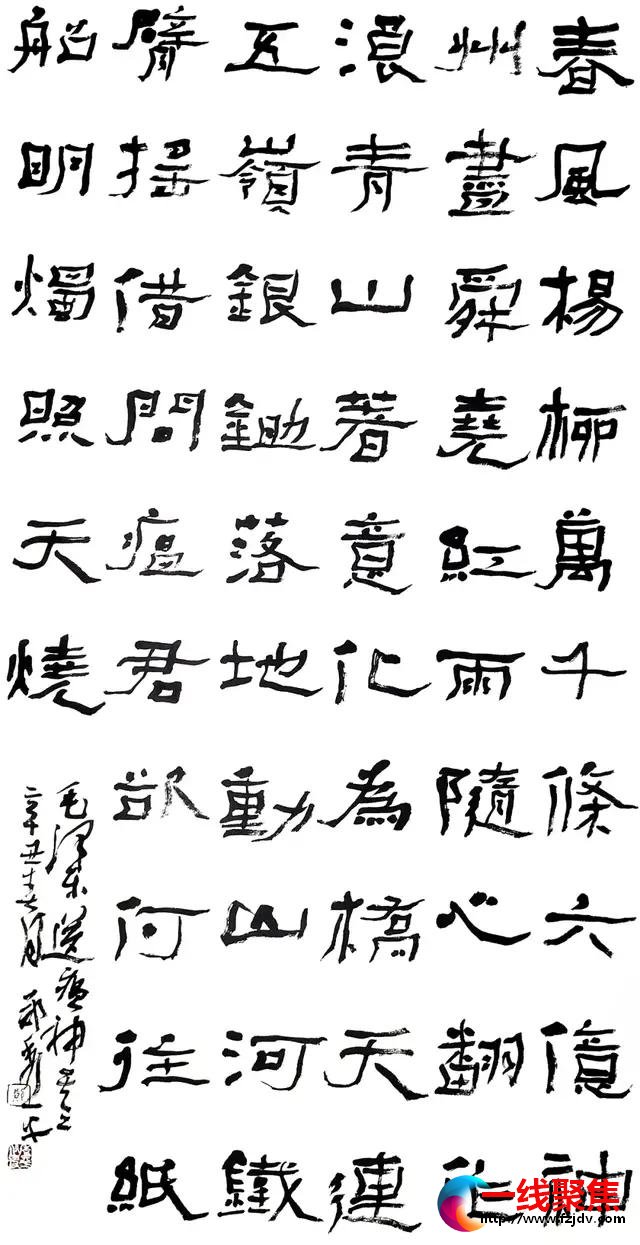 春風楊柳萬千條六億神
州盡舜堯紅雨隨心翻作
浪青山著意化為橋天連
五嶺銀鋤落地動山河鐵
臂搖借問瘟君欲何往紙
船明燭照天燒
毛泽东送瘟神
辛丑春月
一线聚集
http://www.fzjdv.com